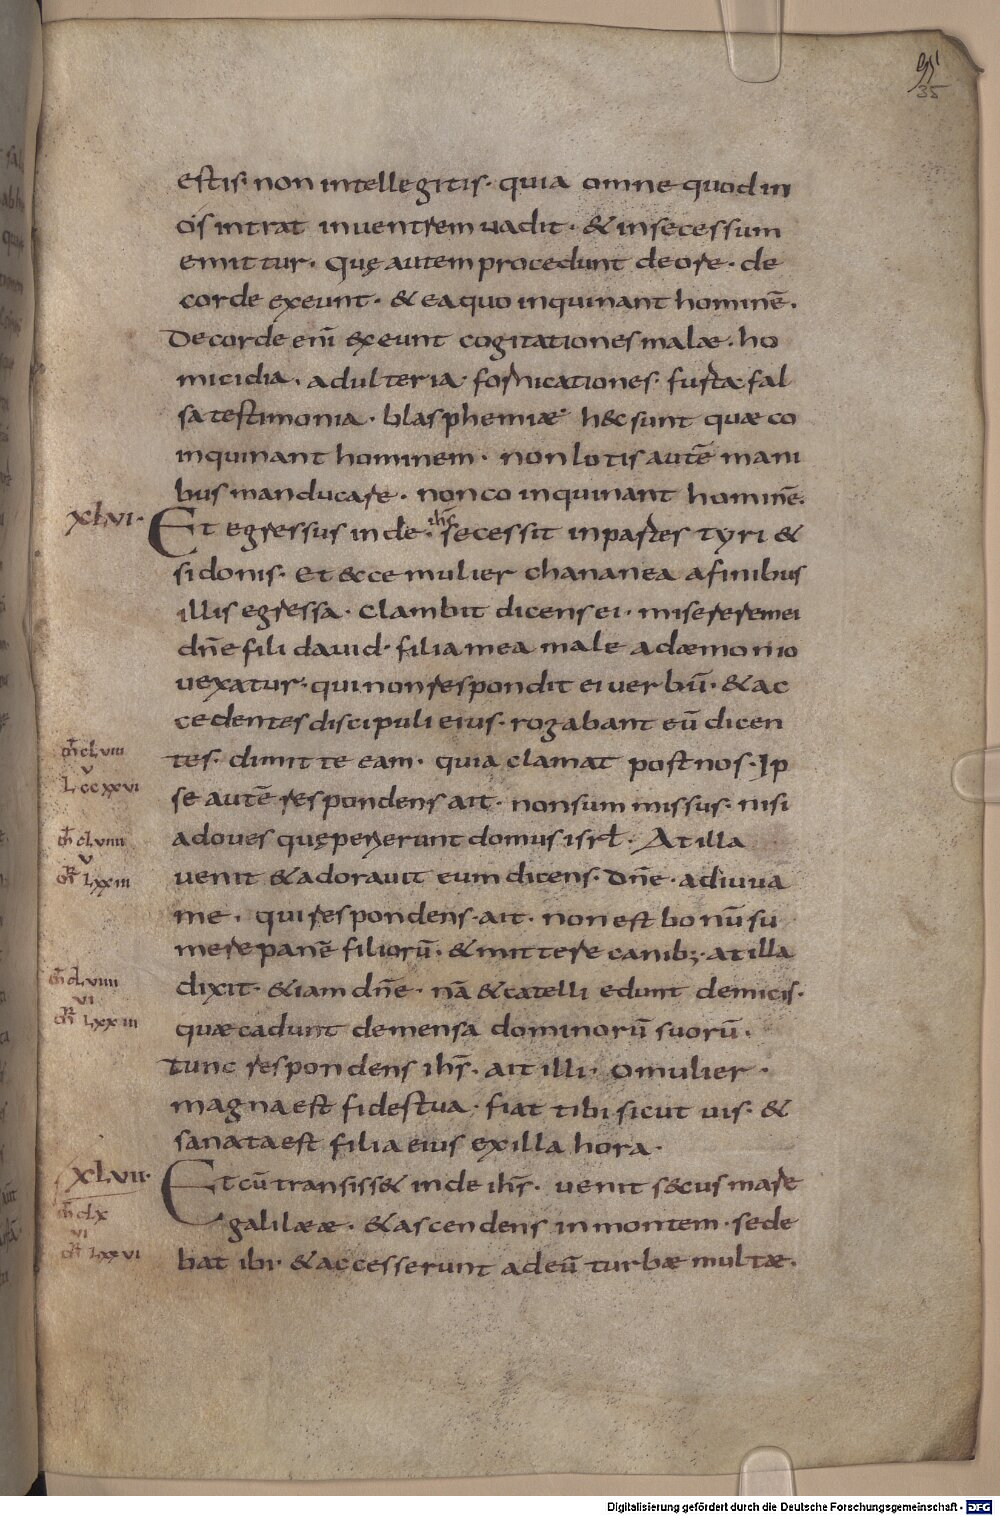 35
estis· non intellegitis· quia omne quod in
os intrat in ventrem vadit · & in secessum
emittur· Quę autem procedunt de ore · de
corde exeunt · & ea quo inquinant hominē·
De corde eni exeunt cogitationes malæ· ho
micidia· adulteria· fornicationes· furta· fal
sa testimonia · blasphemiæ· h&c sunt quæ co
inquinant hominem· non lotis autē mani
bus manducare · non coinquinant hominē·
XLVI· Et egressus inde· ihs̄ secessit in partes tyri &
sidonis· Et &cce mulier chananea a finibus
illis egressa · clambit dicens ei · miserere mei
dn̄e fili david· filia mea male a dæmonio
vexatur· qui non respondit ei verbū· & ac
cedentes discipuli eius· rogabant eū dicen
tes· dimitte eam· quia clamat post nos· Ip
se autē respondens ait· non sum missus· nisi
ad oves quę perierunt domus isrł · At illa
venit & adoravit eum dicens· Dn̄e · adiuva
me · qui respondens· ait· non est bonū su
mere panē filiorū· & mittere canib;· at illa
dixit· &iam dn̄e · nā & catelli edunt de micis·
quæ cadunt de mensa dominorū suorū·
Tunc respondens ihs̄· ait illi· O mulier ·
magna est fides tua · fiat tibi sicut vis· &
sanata est filia eius ex illa hora·
XLVII· Et cū transiss& inde ihs̄· venit s&cus mare
galilææ · & ascendens in montem · sede
bat ibi· & accesserunt ad eū turbæ multæ·
m̄ cLviii
v
L ccxxvi
m̄ cLviiii
v
mr̄ Lxxiii
m̄ cLviiii
vi
mr̄ Lxxiii
m̄ cLx
vi
mr̄ Lxxvi
Digitalisierung gefördert durch die Deutsche Forschungsgemeinschaft - DFG